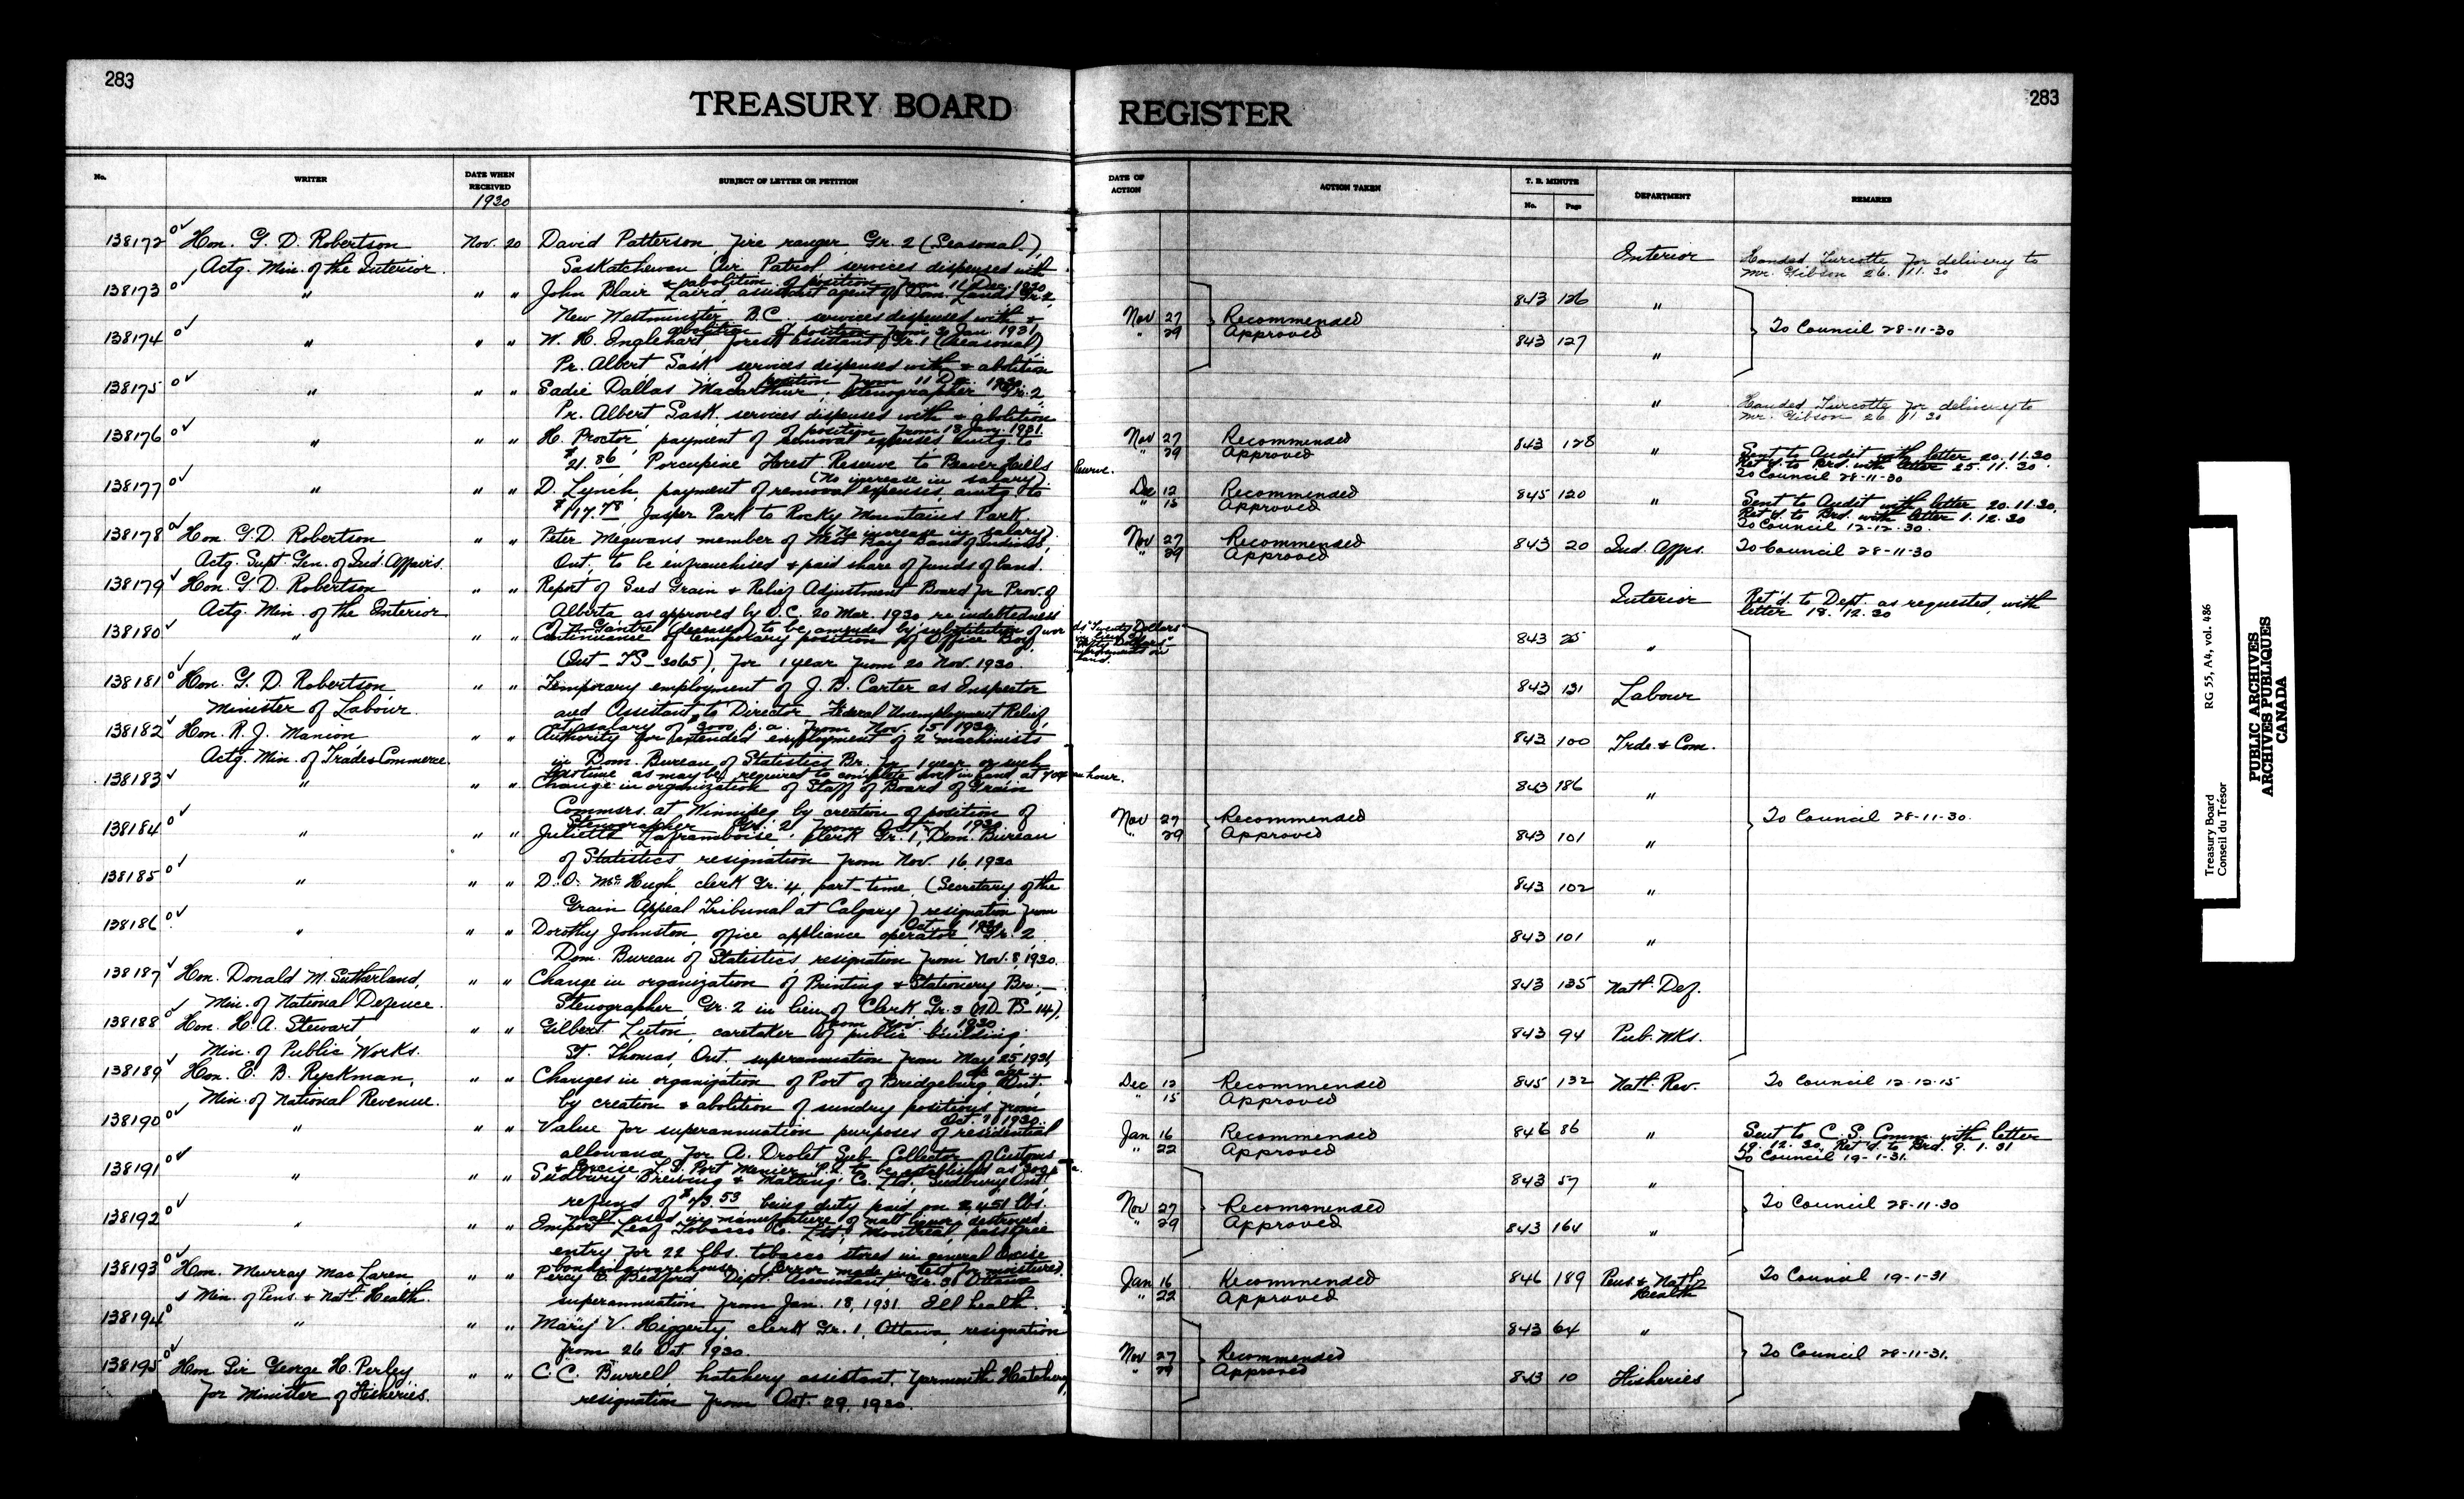 283
TREASURY BOARD
No. WRITER DATE WHEN RECEIVED 1930 SUBJECT OF LETTER OR PETITION
138172 Hon. G. D. Robertson Nov. 20 David Patterson, fire ranger Gr. 2 (Seasonal)
Actg. Min. of the Interior. Saskatchewan Air Patrol, services dispensed with
& abolition of position from 11 Dec. 1930
138173 " " " John Blair Laird, assistant agent of Dom. Lands Gr. 2
New Westminster B.C. services dispensed with &
abolition of position from 30 Jan 1931
138174 " " " W. H. Englehart forest assistant Gr. 1 (Seasonal)
Pr. Albert Sask services dispensed with & abolition
of position from 11 Dec. 1930
138175 " " " Sadie Dallas Macarthur, Stenographer Gr. 2
Pr. Albert Sask. services dispensed with & abolition
of position from 13 Jany. 1931.
138176 " " " H. Proctor, payment of removal expenses amtg. to
$21.86, Porcupine Forest Reserve to Beaver Hills Reserve.
(No increase in salary)
138177 " " " D. Lynch, payment of removal expenses amtg to
$117.78, Jasper Park to Rocky Mountains Park.
(No increase in salary)
138178 Hon. G. D. Robertson " " Peter Megwans member of West Bay Band of Indians,
Actg. Supt. Gen. of Ind. Affairs. Ont., to be enfranchised & paid share of funds of land.
138179 Hon. G. D. Robertson " " Report of Seed Grain & Relief Adjustment Board for Prov. of
Actg. Min. of the Interior Alberta, as approved by O.C. 20 Mar. 1930 re indebtedness
(deceased) to be amended by substitution of words "Twenty Dollars" in lieu of improvements on land.
138180 " " " Continuance of temporary position of Office Boy,
(Int-TS-3065), for 1 year from 20 Nov. 1930.
138181 Hon. G. D. Robertson " " Temporary employment of J. B. Carter as Inspector
Minister of Labour. and Assistant to Director Federal Unemployment Relief,
at salary of $3000 p.a. from Nov. 15 1930
138182 Hon. R. J. Manion " " Authority for extended employment of 2 machinists
Actg. Min. of Trade & Commerce. in Dom. Bureau of Statistics Br. for 1 year or such
as may be required to complete work in hand, at 70¢ an hour.
138183 " " " Change in organization of Staff of Board of Grain
Commrs. at Winnipeg by creation of position of
Stenographer Gr. 2 from 1930
138184 " " " Juliette Laframboise, Clerk Gr. 1, Dom. Bureau
of Statistics, resignation from Nov. 16, 1930
138185 " " " D. O. McHugh, clerk Gr. 4, part-time, (Secretary of the
Grain Appeal Tribunal at Calgary) resignation from
Oct. 1930
138186 " " " Dorothy Johnston, office appliance operator Gr. 2
Dom. Bureau of Statistics resignation from Nov. 8, 1930.
138187 Hon. Donald M. Sutherland, " " Change in organization of Printing & Stationery Br.—
Min. of National Defence. Stenographer, Gr. 2 in lieu of Clerk Gr. 3 (ND-PS-14),
from Nov. 1 1930
138188 Hon. H. A. Stewart " " Gilbert Luton, caretaker of public building
Min. of Public Works. St. Thomas, Ont. superannuation from May 25, 1931,
age
138189 Hon. E. B. Ryckman, " " Changes in organization of Port of Bridgeburg, Ont.
Min. of National Revenue. by creation & abolition of sundry positions from
Oct. 1 1930.
138190 " " " Value for superannuation purposes of residential
allowance for A. Drolet Sub-Collector of Customs
& Excise Port Menier, P.Q. to be established as 300 p.a.
138191 " " " Sudbury Brewing & Malting Co. Ltd., Sudbury Ont.
refund of $73.53 being duty paid on 2451 lbs.
malt used in manufacture of malt liquor, destroyed.
138192 " " " Import Leaf Tobacco Co. Ltd. Montreal, pass free
entry for 22 lbs. tobacco stored in general Excise
bonding warehouse. (Error made in test for moisture)
138193 Hon. Murray MacLaren, " " Percy E. Bedford, Dept. Accountant, Gr. 3, Ottawa
Min. of Pens. & Natl. Health. superannuation from Jan. 18, 1931. Ill health.
138194 " " " Mary V. Higgerty, clerk Gr. 1, Ottawa, resignation
from 26 Oct. 1930.
138195 Hon. Sir George H. Perley, " " C. C. Burrell, hatchery assistant, Yarmouth Hatchery
for Minister of Fisheries. resignation from Oct. 29, 1930.
283
REGISTER
DATE OF ACTION ACTION TAKEN T. B. MINUTE No. Page DEPARTMENT REMARKS
Interior Handed Turcotte for delivery to
Mr. Gibson 26.11.30
843 126 "
Nov 27 Recommended To Council 28-11-30
" 29 Approved
843 127 "
" Handed Turcotte for delivery to
Mr. Gibson 26 11 30
Nov 27 Recommended 843 128 " Sent to Audit with letter 20.11.30
" 29 Approved Ret'd. to Brd. with letter 25.11.30.
To Council 28-11-30
Dec 12 Recommended 845 120 " Sent to Audit with letter 20.11.30,
" 15 Approved Ret'd. to Brd. with letter 1.12.30
To Council 12-12-30.
Nov 27 Recommended 843 20 Ind. Affrs. To Council 28-11-30
" 29 Approved
Interior Ret'd. to Dept. as requested, with
letter 18.12.30
843 25 "
843 131 Labour
843 100 Trde. & Com.
843 186 "
Nov 27 Recommended To Council 28-11-30.
" 29 Approved 843 101 "
843 102 "
843 101 "
843 135 Natl. Def.
843 94 Pub. Wks.
Dec 12 Recommended 845 132 Natl. Rev. To Council 12-12-15
" 15 Approved
Jan 16 Recommended 846 86 " Sent to C. S. Comm. with letter
" 22 Approved 19.12.30, Ret'd. to Brd. 9.1.31
To Council 19-1-31.
843 57 "
Nov 27 Recommended To Council 28-11-30
" 29 Approved 843 164 "
Jan 16 Recommended 846 189 Pens. & Natl. Health To Council 19-1-31
" 22 Approved
843 64 "
Nov 27 Recommended To Council 28-11-31.
" 29 Approved 843 10 Fisheries
Treasury Board RG 55, A4, vol. 486
Conseil du Trésor
PUBLIC ARCHIVES
ARCHIVES PUBLIQUES
CANADA